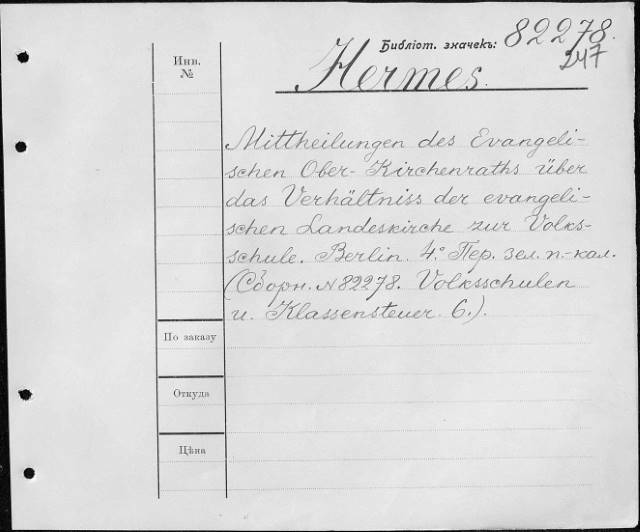 Инв.
№
Библіот. значекъ: 82278.
247
Hermes.
Mittheilungen des Evangeli-
schen Ober-Kirchenraths über
das Verhältniss der evangeli-
schen Landeskirche zur Volks-
schule. Berlin. 4.° Пер. зел. п.-кал.
(Сборн. №82278. Volksschulen
u. Klassensteuer. 6.).
По заказу
Откуда
Цѣна